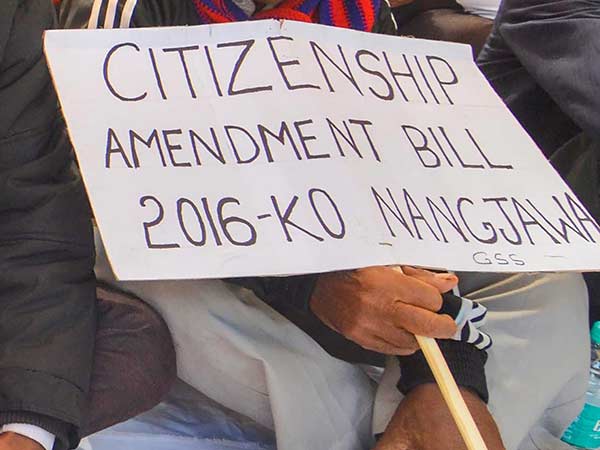 CITIZENSHIP
AMENDMENT BILL
2016-KO NANGJAWA
GSS